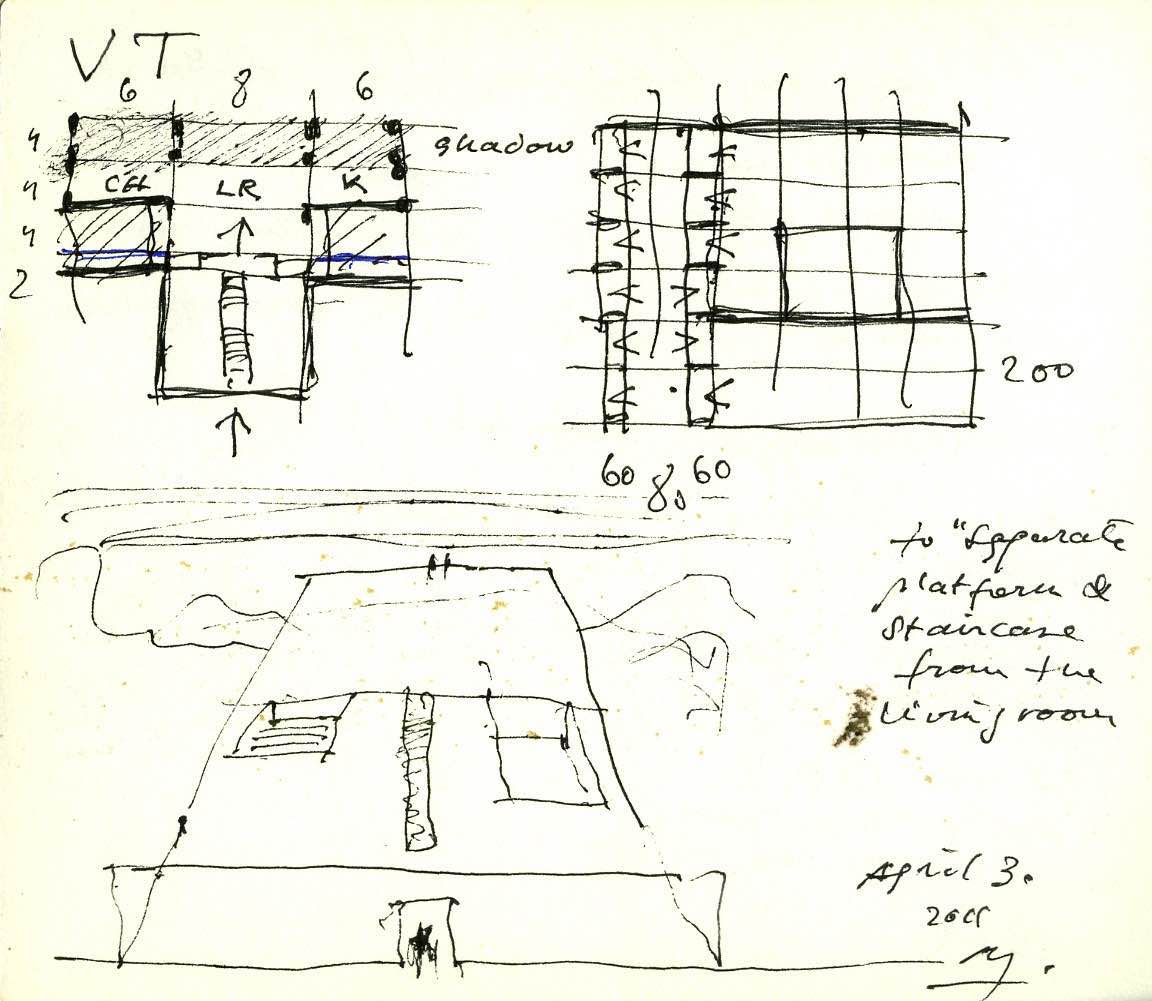 VT
6 8 6
4
4
4
2
shadow
LR
K
200
60 80 60
to "Separate
platform &
staircase
from the
living room
April 3.